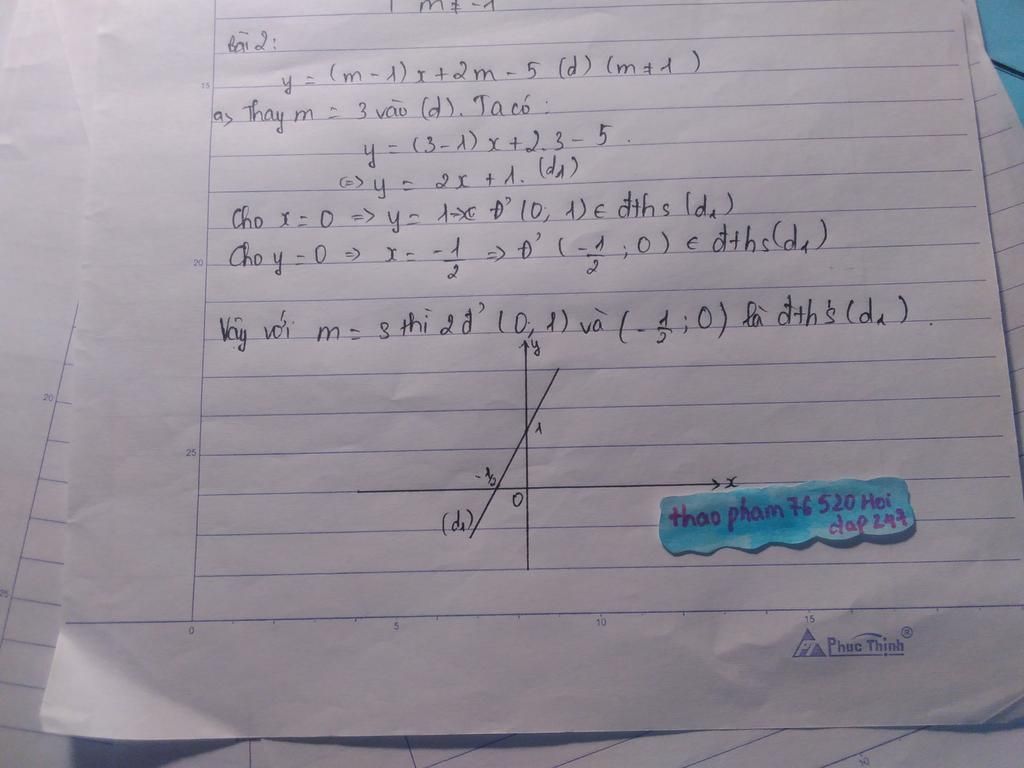 m ≠ -1
bài 2:
y = (m - 1) x + 2m - 5 (d) (m ≠ 1)
a, Thay m = 3 vào (d). Ta có:
y = (3 - 1) x + 2.3 - 5.
<=> y = 2x + 1. (d1)
Cho x = 0 => y = 1 => Đ' (0; 1) ∈ đths (d1)
Cho y = 0 => x = -1/2 => Đ' (-1/2; 0) ∈ đths (d1)
Vậy với m = 3 thì 2 đ' (0; 1) và (-1/2; 0) là đths (d1).
y
1
-1/2
O
x
(d1)
thao pham 76 520 Hoi
dap 247
15
20
25
20
25
0
5
10
15
Phuc Thinh®